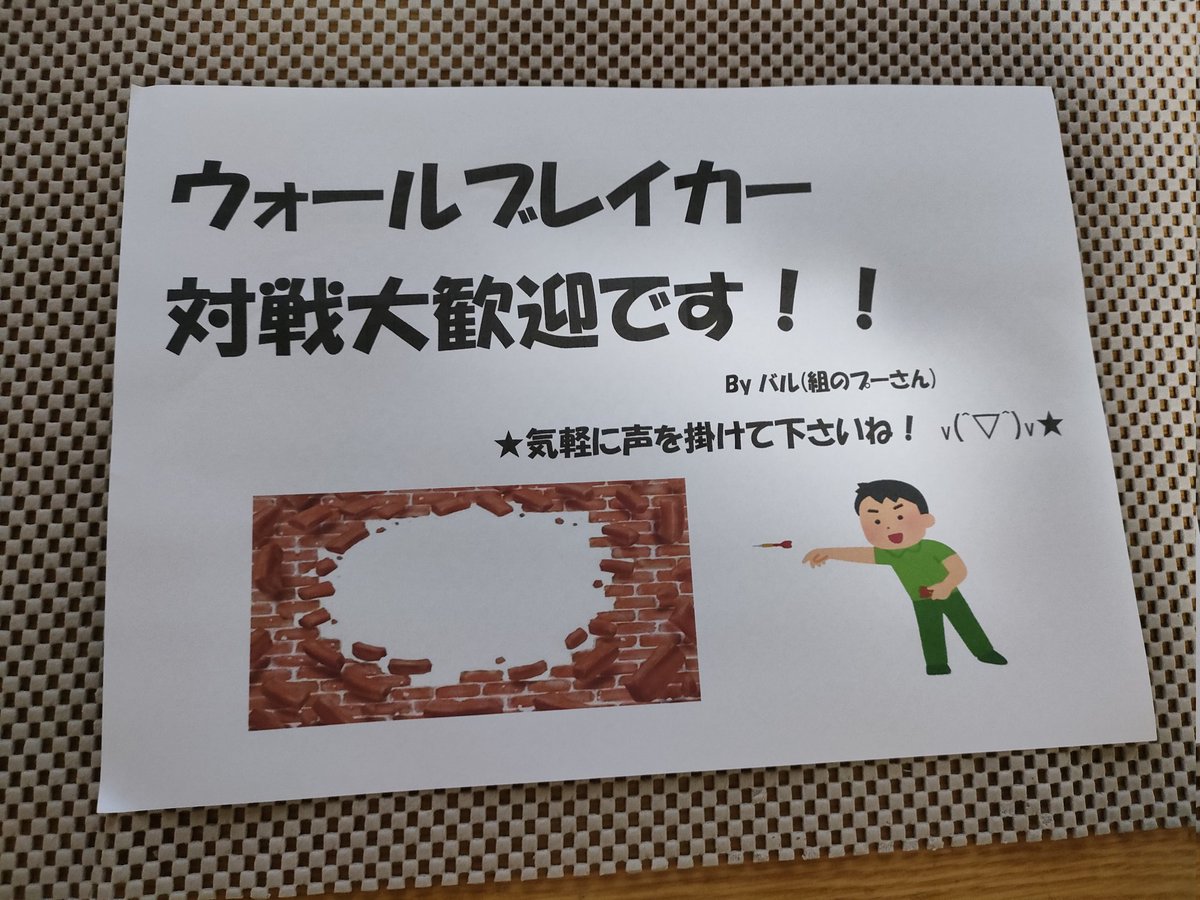 ウォールブレイカー
対戦大歓迎です！！
By バル(組のプーさん)
★気軽に声を掛けて下さいね！ v(^▽^)v★